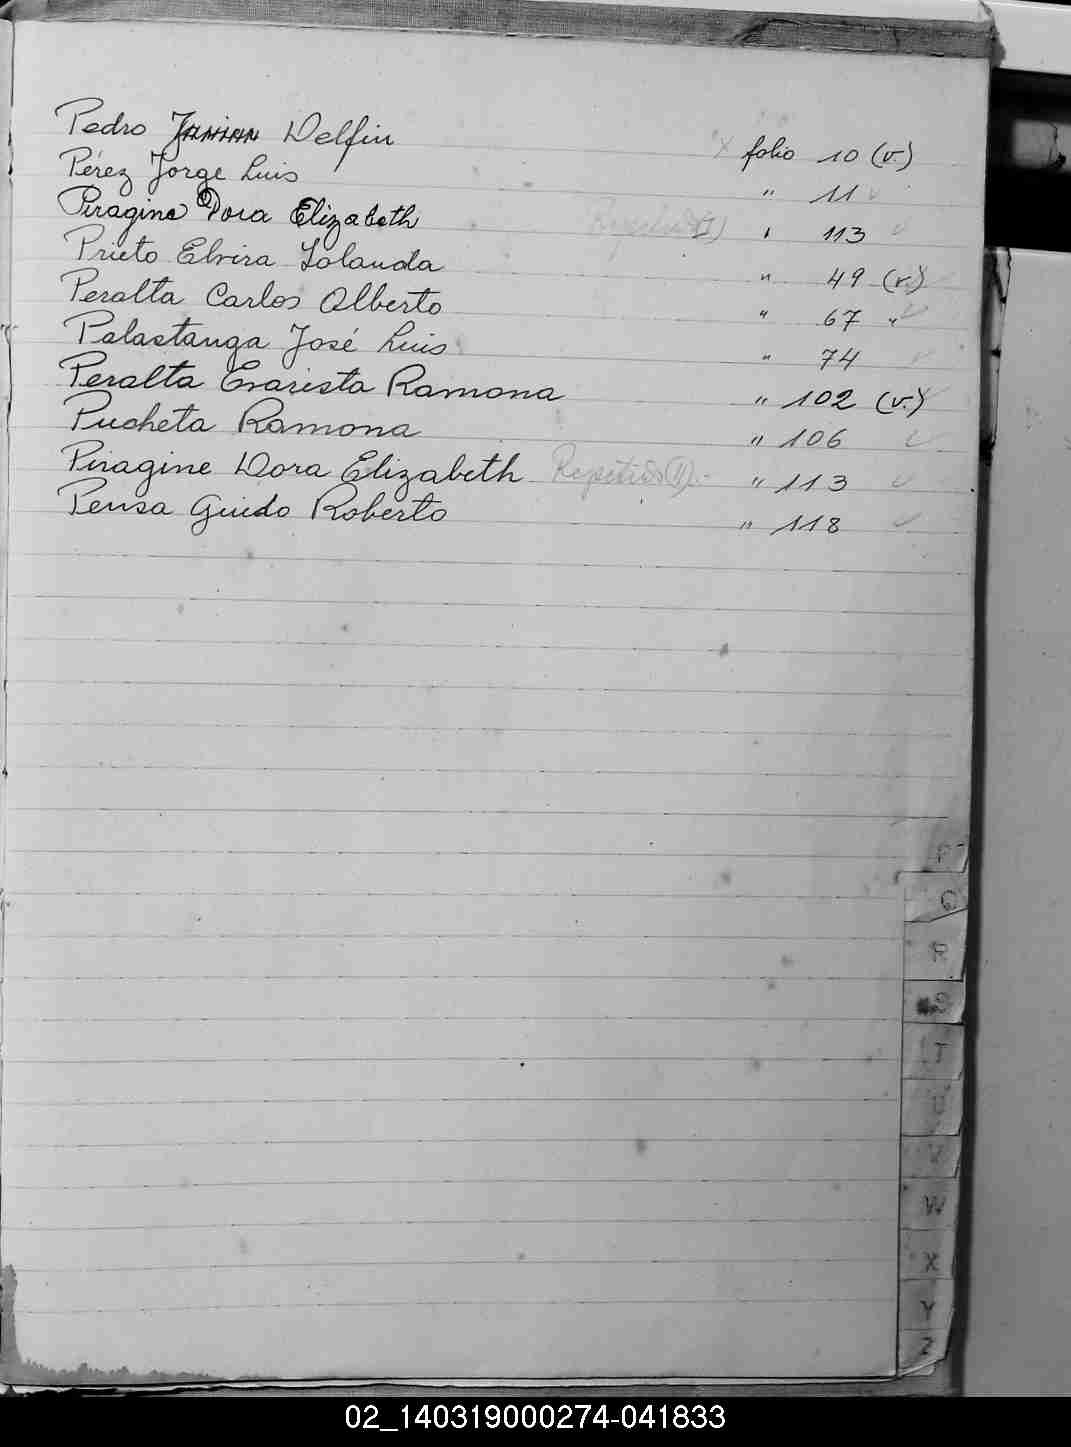 Pedro Delfin x folio 10 (v.)
Pérez Jorge Luis " 11
Piragine Dora Elizabeth Repetido (I) " 113
Prieto Elvira Iolanda " 49 (v.)
Peralta Carlos Alberto " 67 "
Palastanga José Luis " 74
Peralta Evarista Ramona " 102 (v.)
Pucheta Ramona " 106
Piragine Dora Elizabeth Repetido (II).- " 113
Pensa Guido Roberto " 118
P
Q
R
S
T
U
V
W
X
Y
Z
02_140319000274-041833